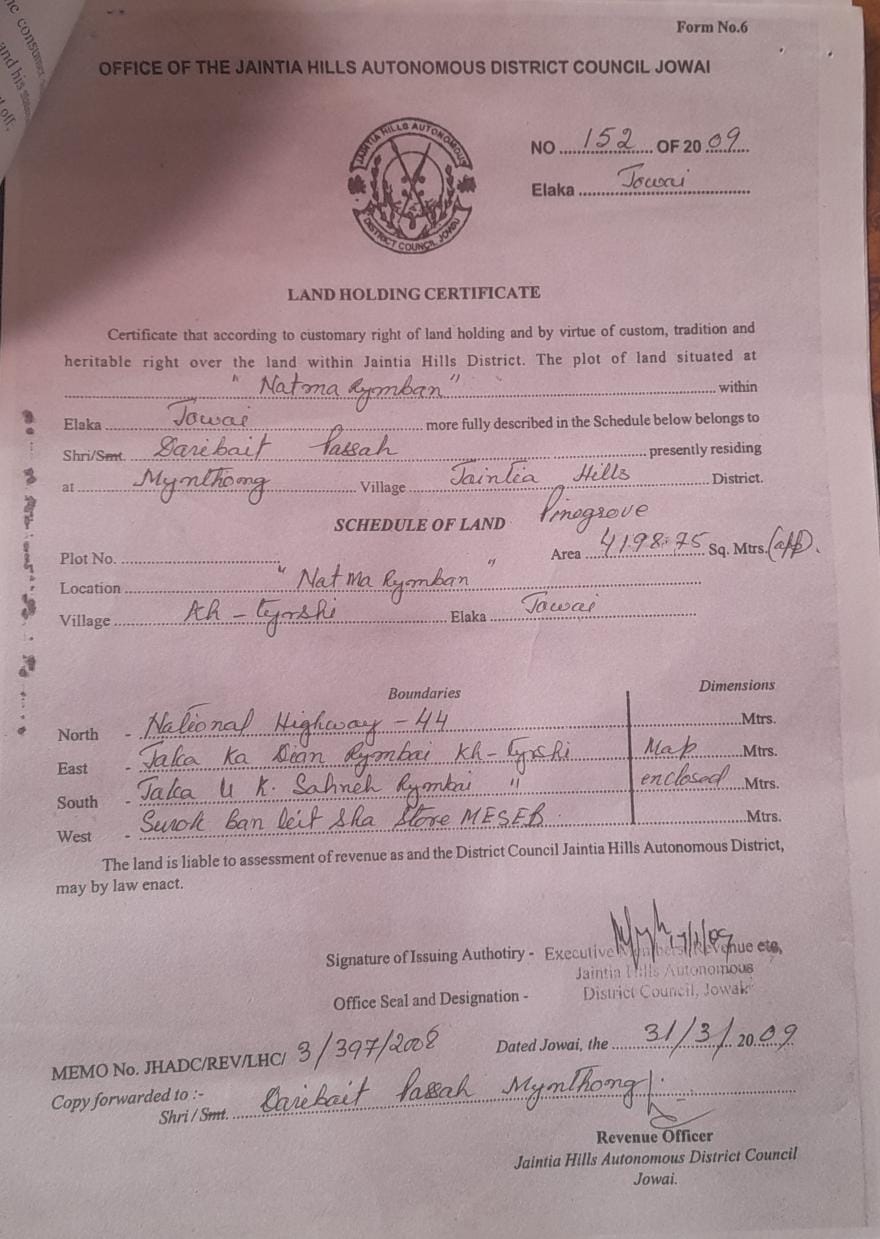 Form No.6
OFFICE OF THE JAINTIA HILLS AUTONOMOUS DISTRICT COUNCIL JOWAI
JAINTIA HILLS AUTONOMOUS
DISTRICT COUNCIL JOWAI
NO ....152.... OF 20 09
Elaka ....Jowai....
LAND HOLDING CERTIFICATE
Certificate that according to customary right of land holding and by virtue of custom, tradition and
heritable right over the land within Jaintia Hills District. The plot of land situated at
"Natma Rymban" within
Elaka Jowai more fully described in the Schedule below belongs to
Shri/Smt. Darebait Passah presently residing
at Mynthong Village Jaintia Hills District.
SCHEDULE OF LAND Pinegrove
Plot No. Area 4198.75 Sq. Mtrs.(app).
Location "Natma Rymban"
Village Kh-Tyrshi Elaka Jowai
Boundaries Dimensions
North - National Highway - 44 Mtrs.
East - Jaka Ka Dian Rymbai Kh-Tyrshi Map Mtrs.
South - Jaka U K. Sahneh Rymbai " enclosed Mtrs.
West - Surok ban leit sha Store MESEB Mtrs.
The land is liable to assessment of revenue as and the District Council Jaintia Hills Autonomous District,
may by law enact.
Signature of Issuing Authotiry - Executive Member, Revenue etc,
Jaintia Hills Autonomous
Office Seal and Designation - District Council, Jowai
MEMO No. JHADC/REV/LHC/ 3/397/2008 Dated Jowai, the 31/3/ 20 09
Copy forwarded to :-
Shri / Smt. Darebait Passah Mynthong
Revenue Officer
Jaintia Hills Autonomous District Council
Jowai.